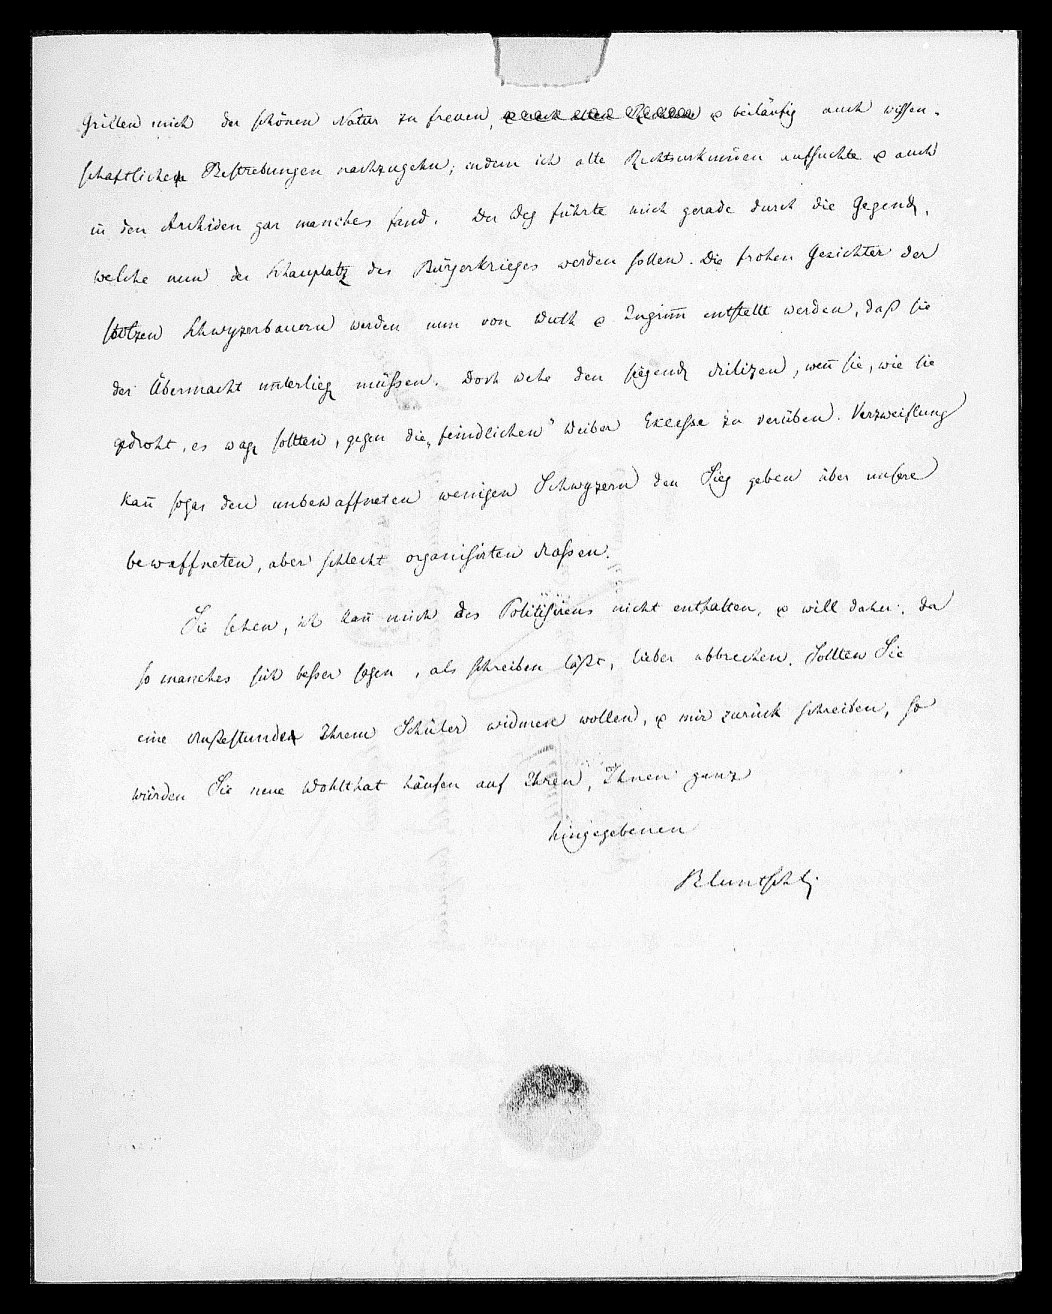 Grillen mich der schönen Natur zu freuen, & beiläufig auch wissen-
schaftlichen Bestrebungen nachzugehn; indem ich alte Rechtsurkunden aufsuchte & auch
in den Archiven gar manches fand. Der Weg führte mich gerade durch die Gegend,
welche nun der Schauplatz des Bürgerkrieges werden sollen. Die frohen Gesichter der
stolzen Schwyzerbauern werden nun von Wuth & Ingrim̅ entstellt werden, daß sie
der Übermacht unterlieg müßen. Doch wehe den siegend Milizen, wen̅ sie, wie sie
gedroht, es wag sollten, gegen die „feindlichen" Weiber Excesse zu verüben. Verzweiflung
kan̅ sogar den unbewaffneten wenigen Schwyzern den Sieg geben über unsere
bewaffneten, aber schlecht organisirten Massen.
Sie sehen, ich kan̅ mich des Politisirens nicht enthalten, & will daher, da
so manches sich besser sagen, als schreiben läßt, lieber abbrechen. Sollten Sie
eine Mußestunde Ihrem Schüler widmen wollen, & mir zurück schreiben, so
würden Sie neue Wohlthat häufen auf Ihren, Ihnen ganz
hingegebenen
Bluntschli